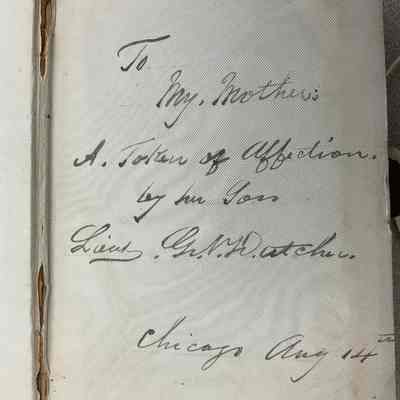 To
My. Mother:
A. Token of Affection.
by her Son
Lieut. G. N. Dutcher.
Chicago Aug 14th